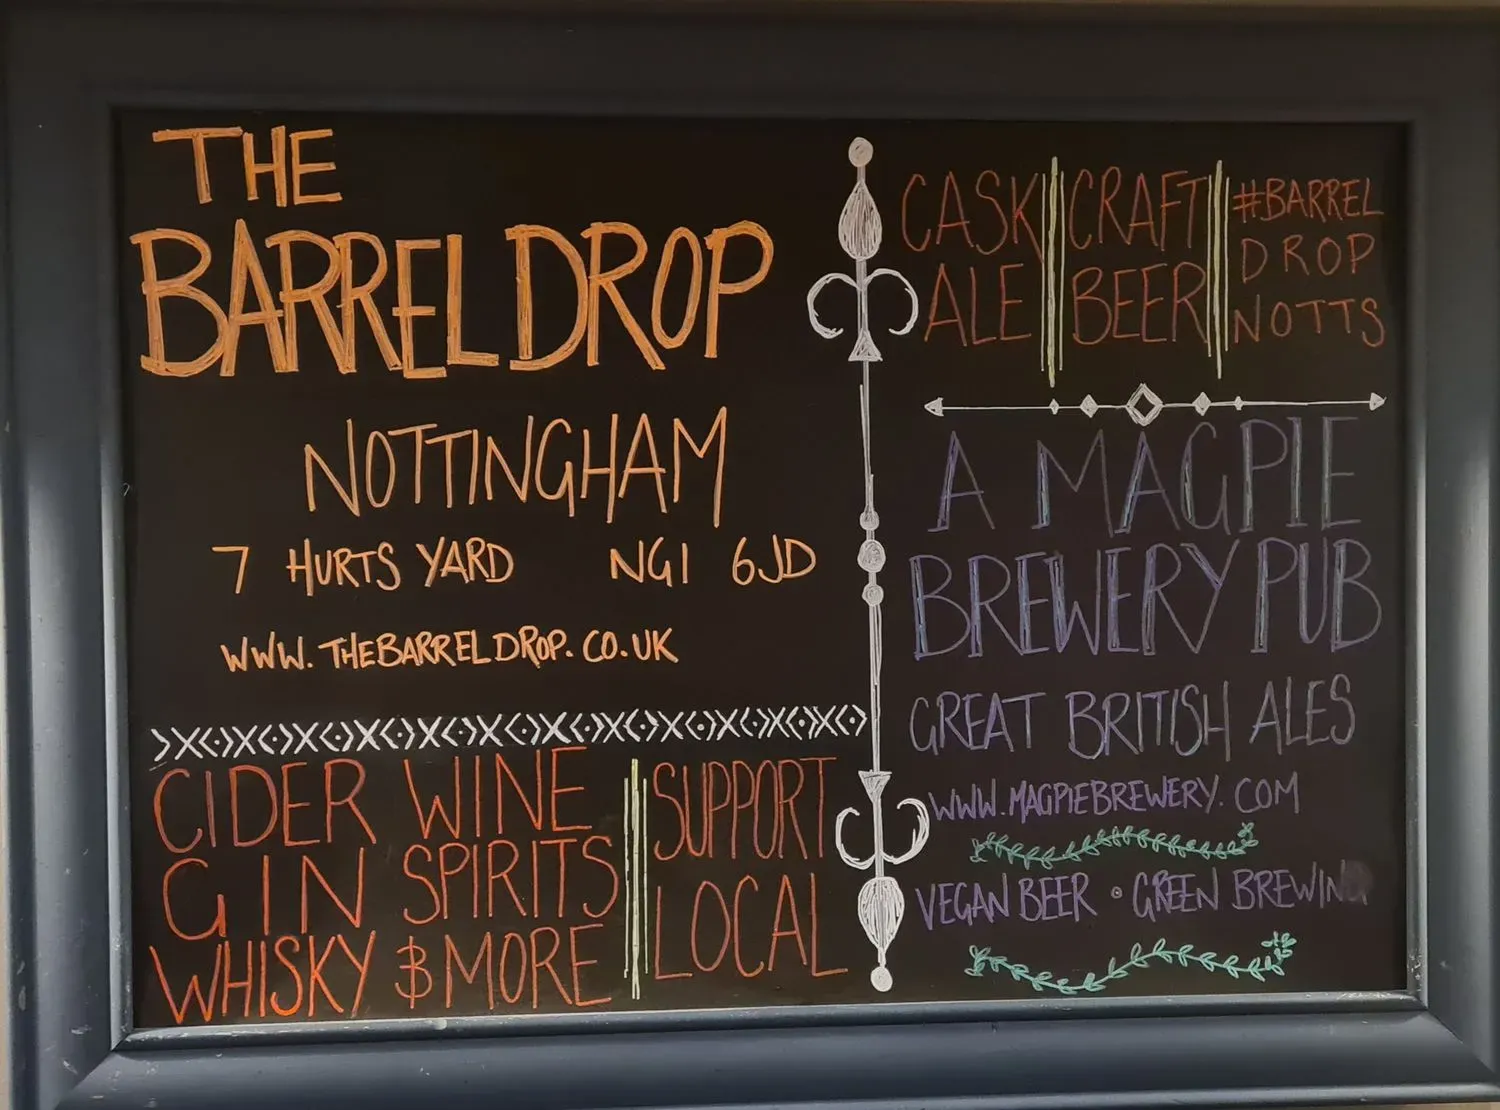 THE
BARREL DROP
NOTTINGHAM
7 HURTS YARD NG1 6JD
WWW.THEBARRELDROP.CO.UK
CIDER WINE
GIN SPIRITS
WHISKY & MORE
SUPPORT
LOCAL
CASK
ALE
CRAFT
BEER
#BARREL
DROP
NOTTS
A MAGPIE
BREWERY PUB
GREAT BRITISH ALES
WWW.MAGPIEBREWERY.COM
VEGAN BEER • GREEN BREWING